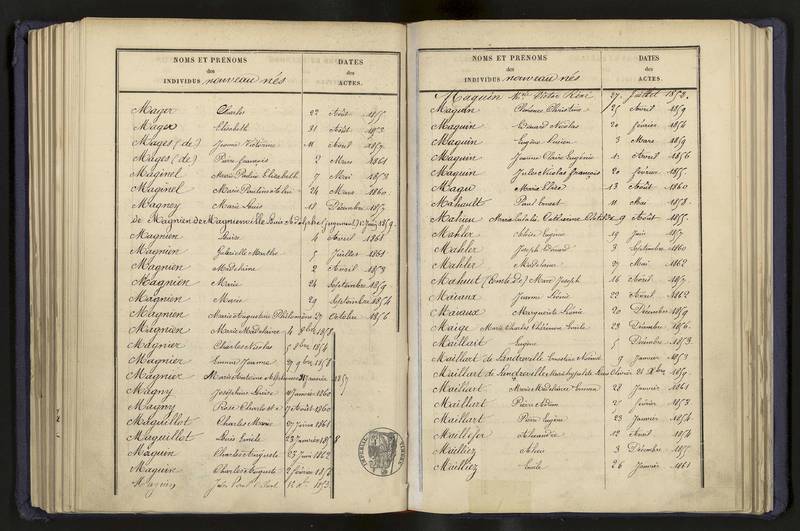 NOMS ET PRÉNOMS
des
INDIVIDUS nouveau nés
DATES
des
ACTES.
Mayer Charles 22 Août 1855.
Mayer Elisabeth 31 Août 1853
Mages (de) Jeanne Victorine 11 Avril 1857.
Mages (de) Pierre françois 2 Mars 1861
Maginel Marie Pauline Elisabeth 7 Mai 1853
Maginel Marie Pauline 24 Mars 1860.
Magney Marie Louis 18 Décembre 1857
de Magnien de Magnienville Louis Adolphe (jugement) 12 Juin 1859.
Magnien Louise 4 Avril 1861
Magnien Gabrielle Marthe 5 Juillet 1861
Magnien Madeleine 2 Avril 1853
Magnien Marie 24 Septembre 1859
Magnien Marie 29 Septembre 1854
Magnien Marie Augustine Philomène 27 Octobre 1856
Magnien Marie Madeleine 4 8bre 1858
Magnier Charles Nicolas 5 8bre 1854
Magnier Jeanne 27 9bre 1858
Magnier Marie Antoine Janvier 1857
Magny Joséphine Louise Janvier 1860
Magny Rose Charlotte 7 Août 1860
Maguillot Charles Marie 27 Juin 1861
Maguillot Louis Emile 23 Janvier 1858
Maguin Charles Auguste 23 Juin 1862
Maguin Charles Auguste 2 février 1852
Maguin Jules 1853
NOMS ET PRÉNOMS
des
INDIVIDUS nouveau nés
DATES
des
ACTES.
Maguin Victor René 27. Juillet 1853.
Maguin Clémence Christine 25 Avril 1859
Maguin Edouard Nicolas 20 février 1854
Maguin Eugène Lucien 3 Mars 1859
Maguin Jeanne Claire Eugénie Avril 1856
Maguin Jules Nicolas françois 20 février 1855.
Magu Marie Elisa 13 Août 1860
Mahault Paul Ernest 11 Mai 1858
Mahieu Marie Catherine 9 Août 1855.
Mahler Eugène 19 Juin 1857
Mahler Joseph Edouard 3 Septembre 1860
Mahler Madeleine 27 Mai 1862
Mahuet (Comte de) Marc Joseph 16 Avril 1857
Maiaux Jeanne Léonie 22 Août 1862
Maiaux Marguerite Léonie 20 Décembre 1859
Maige Marie Charles Emile 23 Décembre 1856.
Maillait Eugène 5 Décembre 1853.
Maillart de Landreville 9 Janvier 1853
Maillart de Landreville Marie 21 Xbre 1857.
Maillart Marie Madeleine Emma 28 Janvier 1861
Maillart Pierre 27 février 1853
Maillart Pierre Eugène 23 Janvier 1854.
Maillefer Alexandre 12 Avril 1854
Mailliez 3 Décembre 1855
Mailliez Emile 26 Janvier 1861